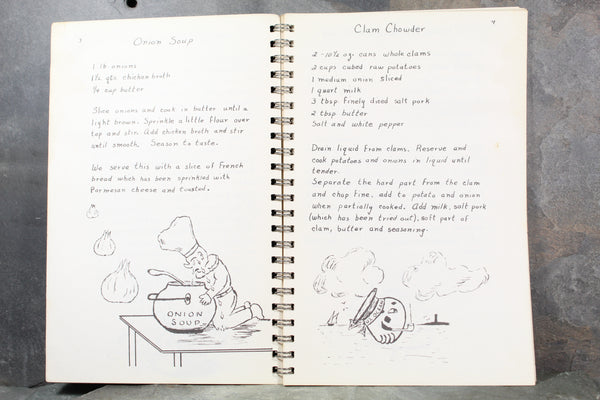 3
Onion Soup
1 lb onions
1½ qts chicken broth
¼ cup butter
Slice onions and cook in butter until a
light brown. Sprinkle a little flour over
top and stir. Add chicken broth and stir
until smooth. Season to taste.
We serve this with a slice of French
bread which has been sprinkled with
Parmesan cheese and toasted.
ONION
SOUP
4
Clam Chowder
2 - 10½ oz. cans whole clams
2 cups cubed raw potatoes
1 medium onion sliced
1 quart milk
3 tbsp finely diced salt pork
2 tbsp butter
Salt and white pepper
Drain liquid from clams. Reserve and
cook potatoes and onions in liquid until
tender.
Separate the hard part from the clam
and chop fine. add to potato and onion
when partially cooked. Add milk, salt pork
(which has been tried out), soft part of
clam, butter and seasoning.